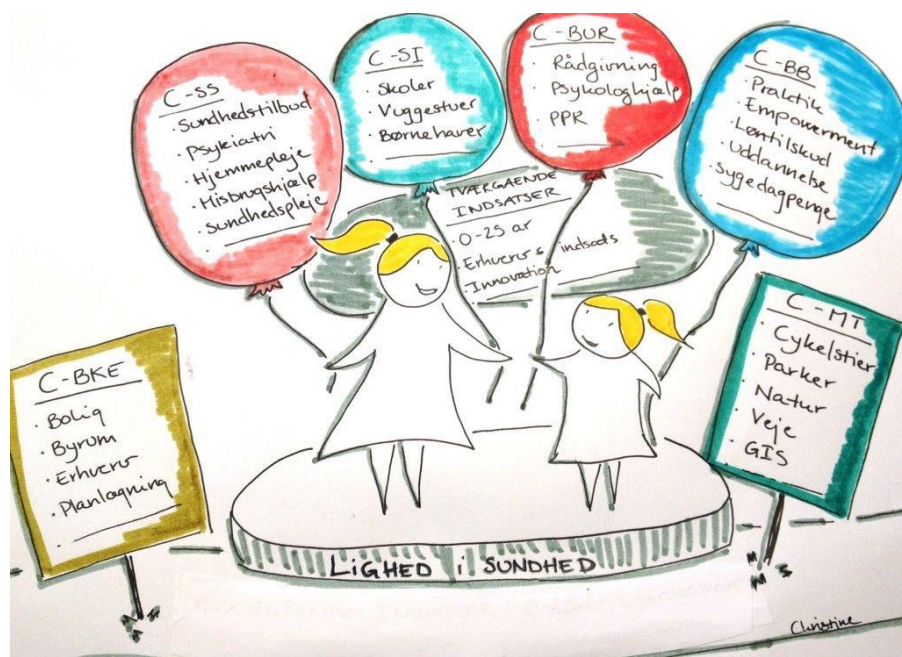 C-SS
· Sundhedstilbud
· Psykiatri
· Hjemmepleje
· Misbrugshjælp
· Sundhedspleje
C-SI
· Skoler
· Vuggestuer
· Børnehaver
C-BUR
· Rådgivning
· Psykologhjælp
· PPR
C-BB
· Praktik
· Empowerment
· Løntilskud
· Uddannelse
· Sygedagpenge
TVÆRGAENDE
INDSATSER
· 0-25 år
· Erhvervs indsats
· Innovation
C-BKE
· Bolig
· Byrum
· Erhverv
· Planlægning
C-MT
· Cykelstier
· Parker
· Natur
· Veje
· GIS
LIGHED i SUNDHED
Christine